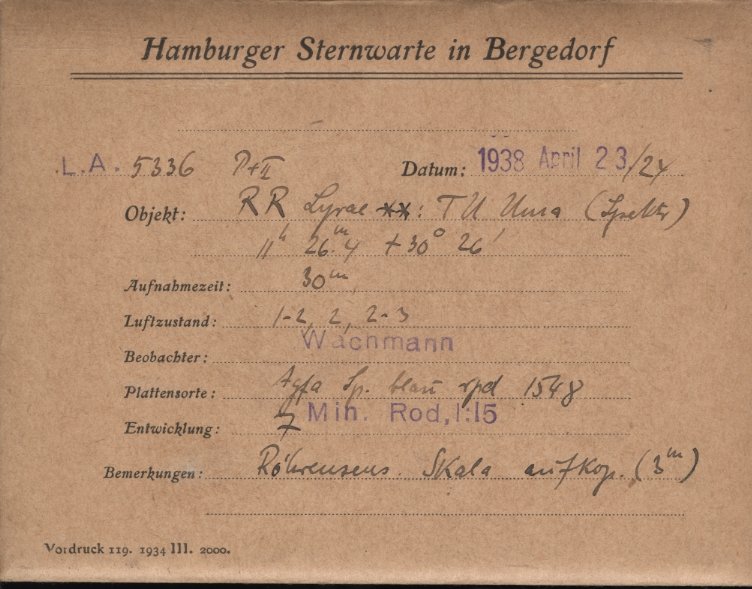 Hamburger Sternwarte in Bergedorf
L.A. 5336 P+II Datum: 1938 April 23/24
Objekt: RR Lyrae **: TU Uma (Spektr)
11h 26m.4 +30° 26'
Aufnahmezeit: 30m
Luftzustand: 1-2, 2, 2-3
Beobachter: Wachmann
Plattensorte: Agfa Sp. blau rpd 1548
Entwicklung: 7 Min. Rod, 1:15
Bemerkungen: Röhrensens. Skala aufkop. (3m)
Vordruck 119. 1934 III. 2000.